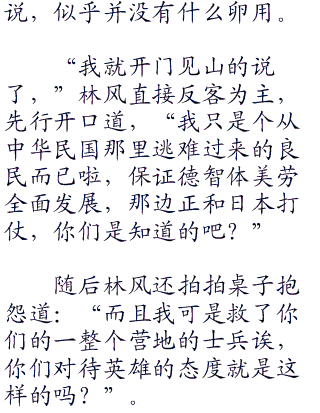 说，似乎并没有什么卵用。
“我就开门见山的说
了，”林风直接反客为主，
先行开口道，“我只是个从
中华民国那里逃难过来的良
民而已啦，保证德智体美劳
全面发展，那边正和日本打
仗，你们是知道的吧？”
随后林风还拍拍桌子抱
怨道：“而且我可是救了你
们的一整个营地的士兵诶，
你们对待英雄的态度就是这
样的吗？”。